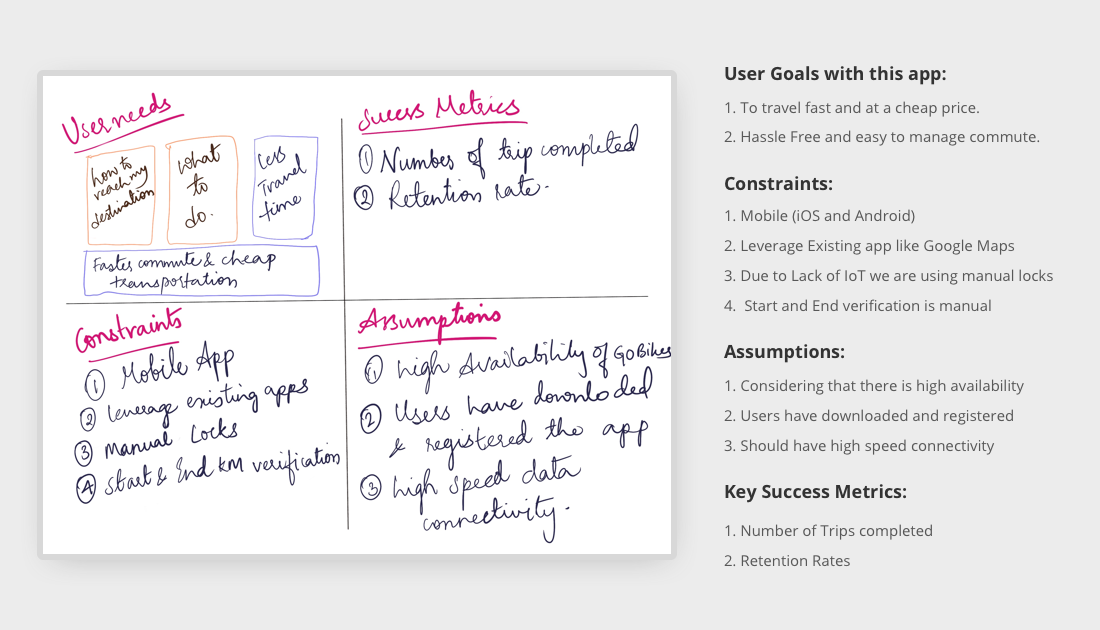 User needs
how to
reach my
destination
what
to
do.
Less
Travel
time
Faster commute & cheap
transportation
Success Metrics
① Number of trip completed
② Retention rate.
Constraints
① Mobile App
② Leverage existing apps
③ Manual Locks
④ Start & End KM verification
Assumptions
① high Availability of GoBikes
② Users have downloded
& registered the app
③ high speed data
connectivity.
User Goals with this app:
1. To travel fast and at a cheap price.
2. Hassle Free and easy to manage commute.
Constraints:
1. Mobile (iOS and Android)
2. Leverage Existing app like Google Maps
3. Due to Lack of IoT we are using manual locks
4. Start and End verification is manual
Assumptions:
1. Considering that there is high availability
2. Users have downloaded and registered
3. Should have high speed connectivity
Key Success Metrics:
1. Number of Trips completed
2. Retention Rates